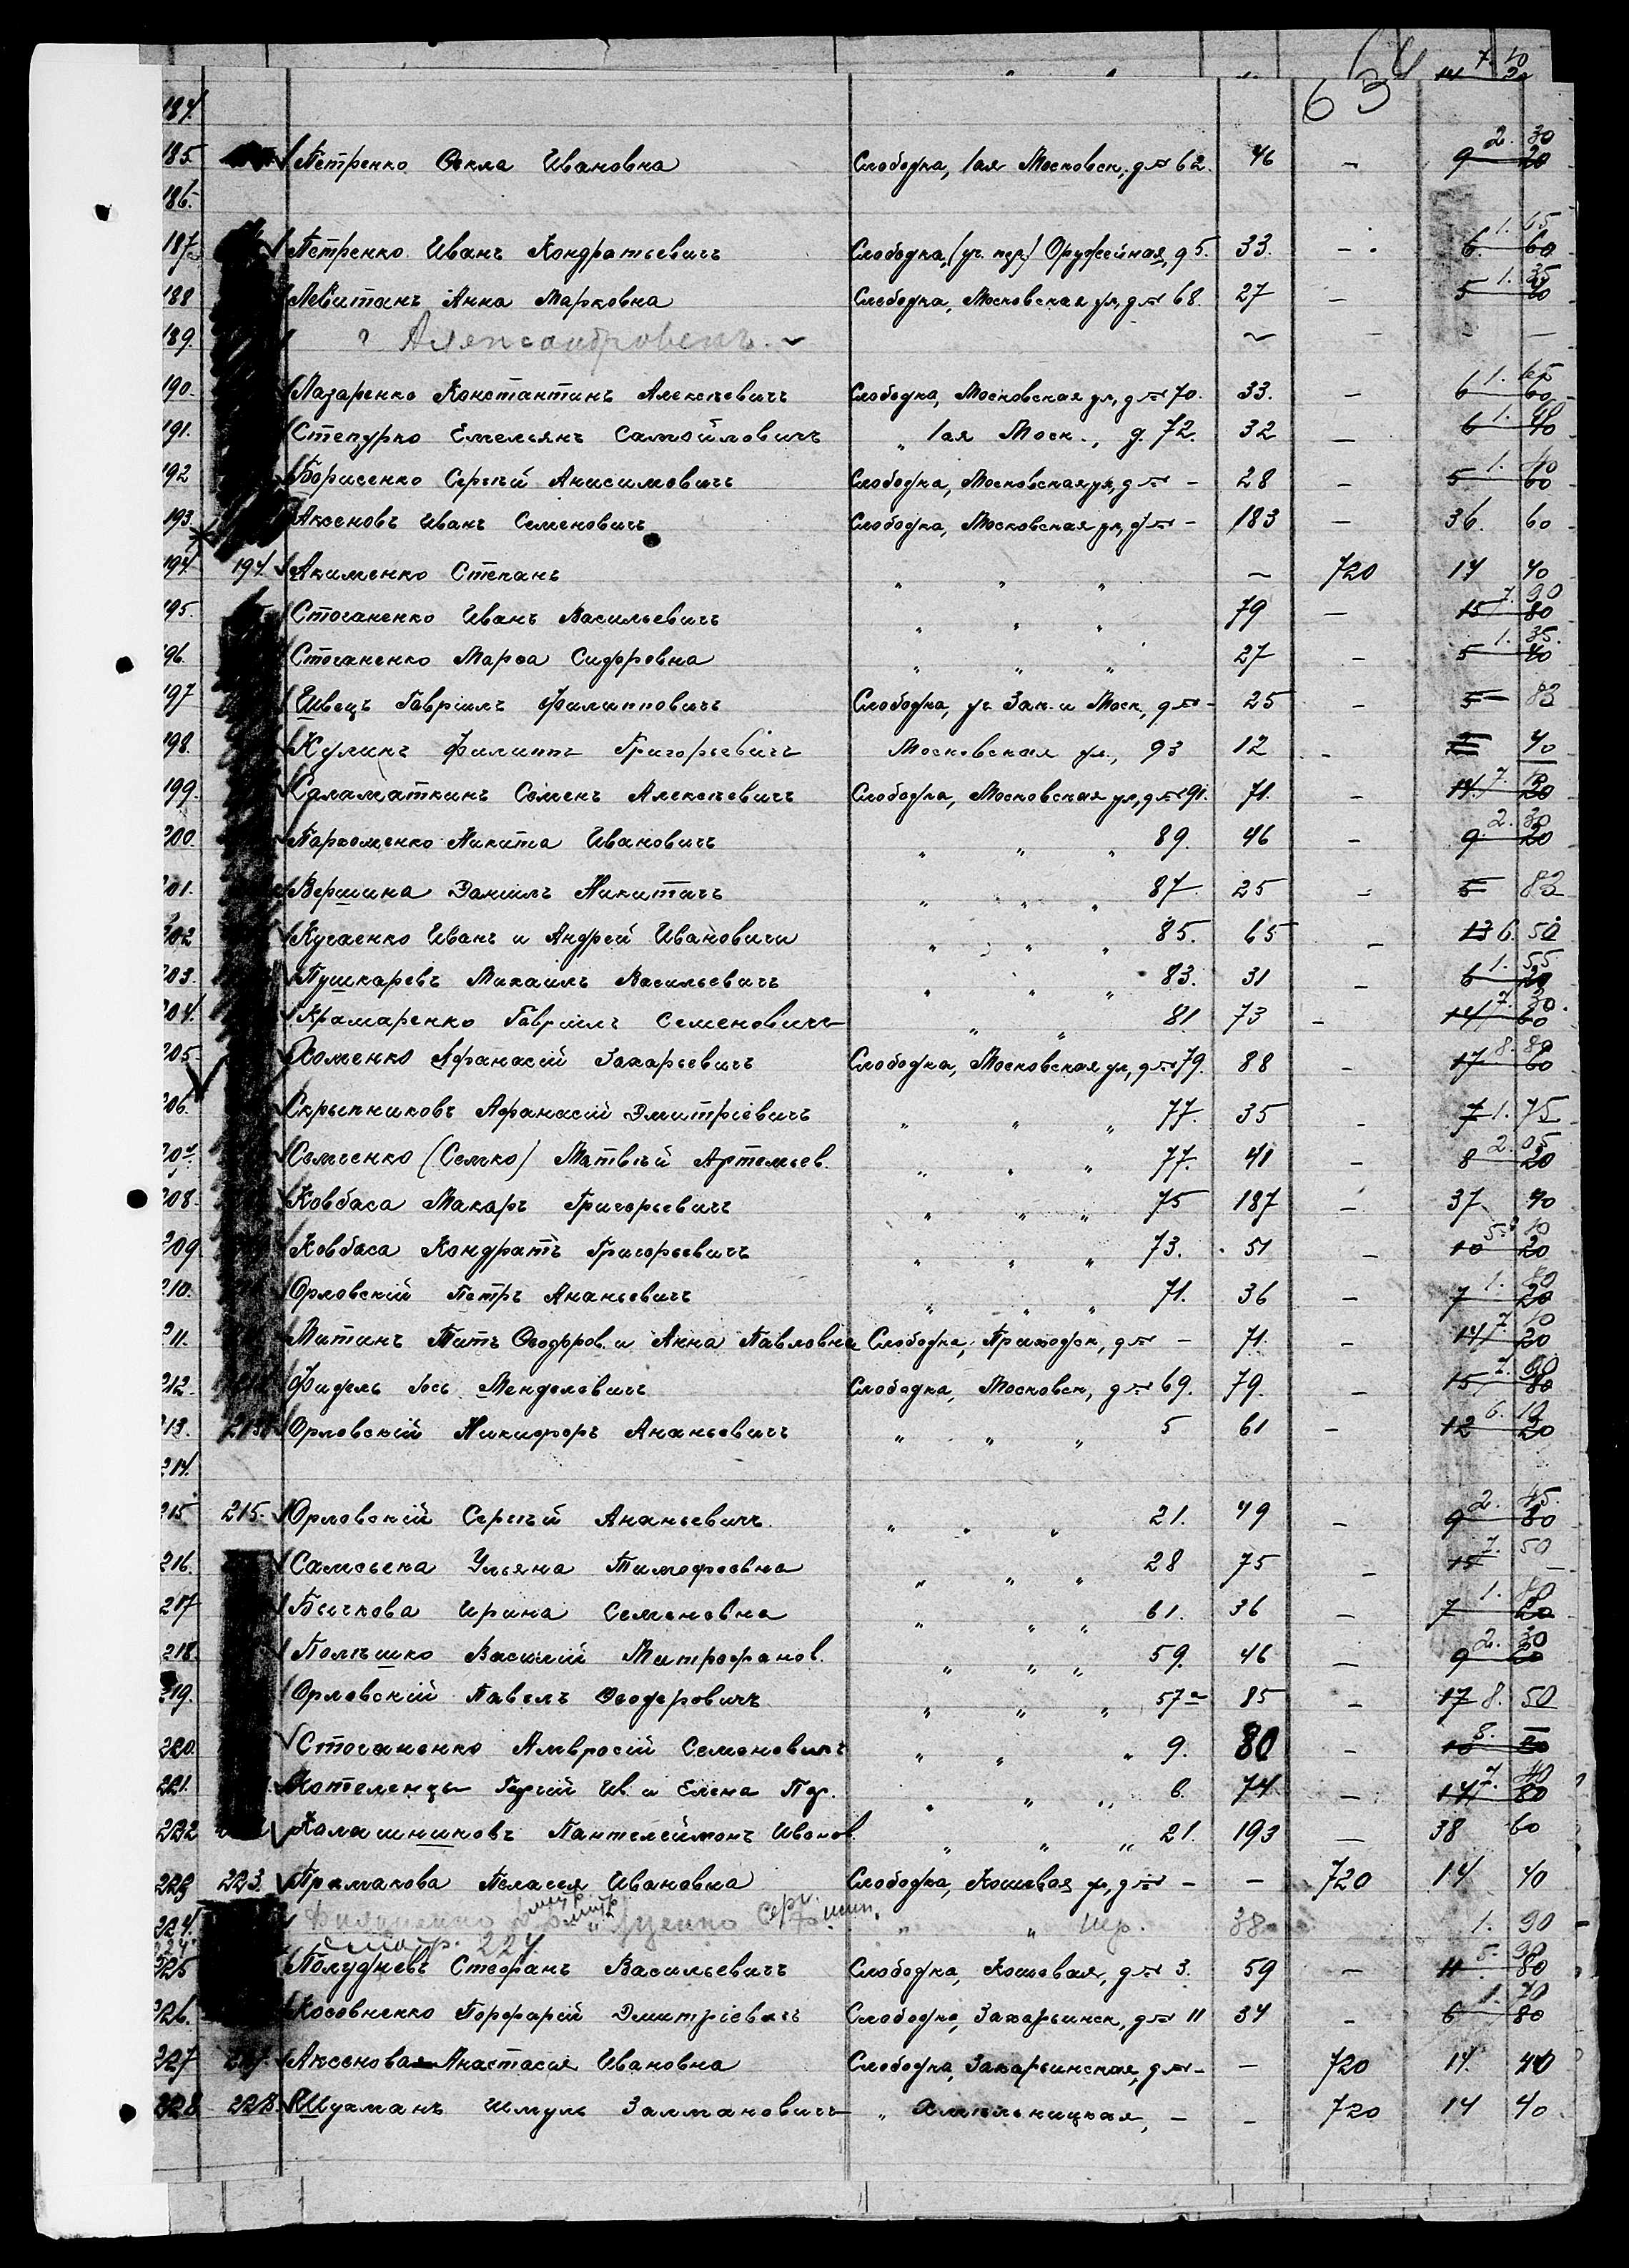 7. 10
63
184.
185. Петренко Ѳекла Ивановна Слободка, 1ая Московск., д № 62. 46 — 9 20 2. 30
186.
187. Петренко Иванъ Кондратьевичъ Слободка, (уг. пер.) Оружейная, д 5. 33. — 6. 60 1. 65
188 Левитанъ Анна Марковна Слободка, Московская ул, д № 68. 27 — 5 40 1. 35
189. " Александровскъ. — — —
190. Лазаренко Константинъ Алексѣевичъ Слободка, Московская ул, д № 70. 33. — 6 60 1. 65
191. Степурко Емельянъ Самойловичъ " 1ая Моск., д. 72. 32 — 6 40 1. 60
192 Борисенко Сергѣй Анисимовичъ Слободка, Московская ул, д № — 28 — 5 60 1. 40
193. Аксеновъ Иванъ Семеновичъ Слободка, Московская ул, д № — 183 — 36. 60
194. 194. Акименко Степанъ " " " — 720 14 40
195. Стоганенко Иванъ Васильевичъ " " " 79 — 15 80 7. 90
196. Стоганенко Марѳа Сидоровна " " " 27 — 5 40 1. 35.
197 Швецъ Гавріилъ Филипповичъ Слободка, уг. Зах. и Моск., д № — 25 — 5 — 83
198. Куликъ Филиппъ Григорьевичъ Московская ул., 93 12 — 40
199. Саламаткинъ Семенъ Алексѣевичъ Слободка, Московская ул, д № 91. 71. — 14. 20 7. 10
200. Пархоменко Никита Ивановичъ " " " 89. 46 — 9. 20 2. 30
201. Вершина Даніилъ Никитичъ " " " 87. 25 — 5 83
202 Кугаенко Иванъ и Андрей Ивановичи " " " 85. 65 — 13 6. 50
203. Пушкаревъ Михаилъ Васильевичъ " " " 83. 31 — 6 20 1. 55
204. Крамаренко Гавріилъ Семеновичъ " " 81 73 — 14 60 7. 30.
205. Хоменко Афанасій Захарьевичъ Слободка, Московская ул, д № 79. 88 — 17 60 8. 80
206. Скрыпниковъ Афанасій Дмитріевичъ " " " 77. 35 — 7 1. 75
207. Семченко (Семко) Матвѣй Артемьев. " " " 77. 41 — 8 20 2. 05
208. Ковбаса Макаръ Григорьевичъ " " " 75 187 — 37 40
209 Ковбаса Кондратъ Григорьевичъ " " " 73. 51 — 10 20 5. 10
210. Орловскій Петръ Ананьевичъ " " " 71. 36 — 7 20 1. 80
211. Митинъ Титъ Ѳеодоров. и Анна Павловна Слободка, Приходск, д № — 71. — 14 20 7. 10
212. Фидель Іось Менделовичъ Слободка, Московск, д № 69. 79. — 15 80 7. 90
213. 213. Орловскій Никифоръ Ананьевичъ " " " 5 61 — 12 20 6. 10
214.
215 215. Орловскій Сергѣй Ананьевичъ " " " 21. 49 — 9 80 2. 45.
216. Самсьека Ульяна Тимофеевна " " " 28 75 — 15 — 7. 50
217 Бычкова Ирина Семеновна " " " 61. 36 — 7 20 1. 80
218. Полѣшко Василій Митрофанов. " " " 59. 46 — 9 20 2. 30
219. Орловскій Павелъ Ѳеодоровичъ " " " 57а 85 — 17 8. 50
220. Стоганенко Амвросій Семеновичъ " " " 9. 80 — 8. —
221. Котеленцы Гордій Ив. и Елена Пор. " " " 6. 74 — 14 80 7. 40
222 Калашниковъ Пантелеймонъ Иванов. " " " 21. 193 — 38 60
223 223. Примакова Пелагея Ивановна Слободка, Кошевая ул, д № — — 720 14 40
224. Серг. " " 38 1. 90
смотр. 224.
225 Полудневъ Стефанъ Васильевичъ Слободка, Кошевая, д № 3. 59 — 11 80 5. 90
226. Косовненко Порфирій Дмитріевичъ Слободка, Захарьинск, д № 11 34 — 6 80 1. 70
227 227. Аксенова Анастасія Ивановна Слободка, Захарьинская, д № — — 720 14. 40
228 228. Шухманъ Шмуль Залмановичъ " Хмельницкая, — — 720 14 40